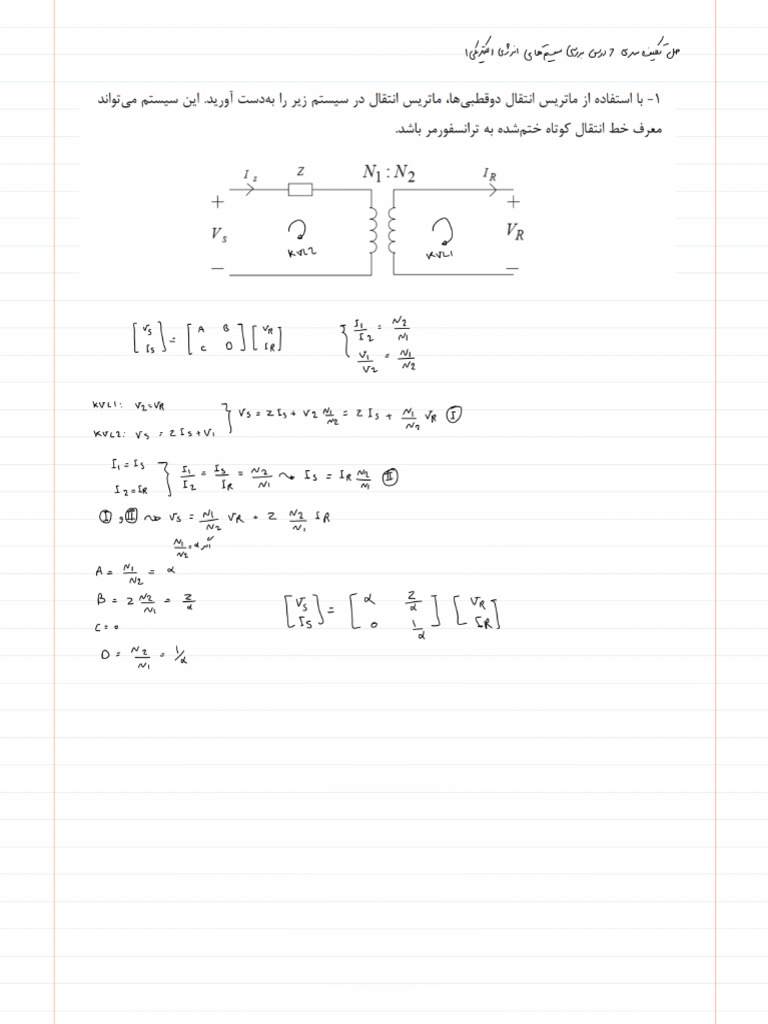 حل تکلیف سری 7 درس بررسی سیستم‌های انرژی الکتریکی 1
۱- با استفاده از ماتریس انتقال دوقطبی‌ها، ماتریس انتقال در سیستم زیر را به‌دست آورید. این سیستم می‌تواند
معرف خط انتقال کوتاه ختم‌شده به ترانسفورمر باشد.
I_s Z N_1 : N_2 I_R
+ +
V_s KVL2 KVL1 V_R
− −
[V_S I_S] = [A B C D] [V_R I_R] { I_1/I_2 = N_2/N_1
V_1/V_2 = N_1/N_2
KVL1: V_2=V_R
KVL2: V_S = Z I_S + V_1 } V_S = Z I_S + V_2 N_1/N_2 = Z I_S + N_1/N_2 V_R Ⓘ
I_1 = I_S
I_2 = I_R } I_1/I_2 = I_S/I_R = N_2/N_1 ⇝ I_S = I_R N_2/N_1 Ⓘ Ⓘ
Ⓘ , ⒾⒾ ⇝ V_S = N_1/N_2 V_R + Z N_2/N_1 I_R
N_1/N_2 = α
A = N_1/N_2 = α
B = Z N_2/N_1 = Z/α
C = 0
D = N_2/N_1 = 1/α
[V_S I_S] = [α Z/α 0 1/α] [V_R I_R]